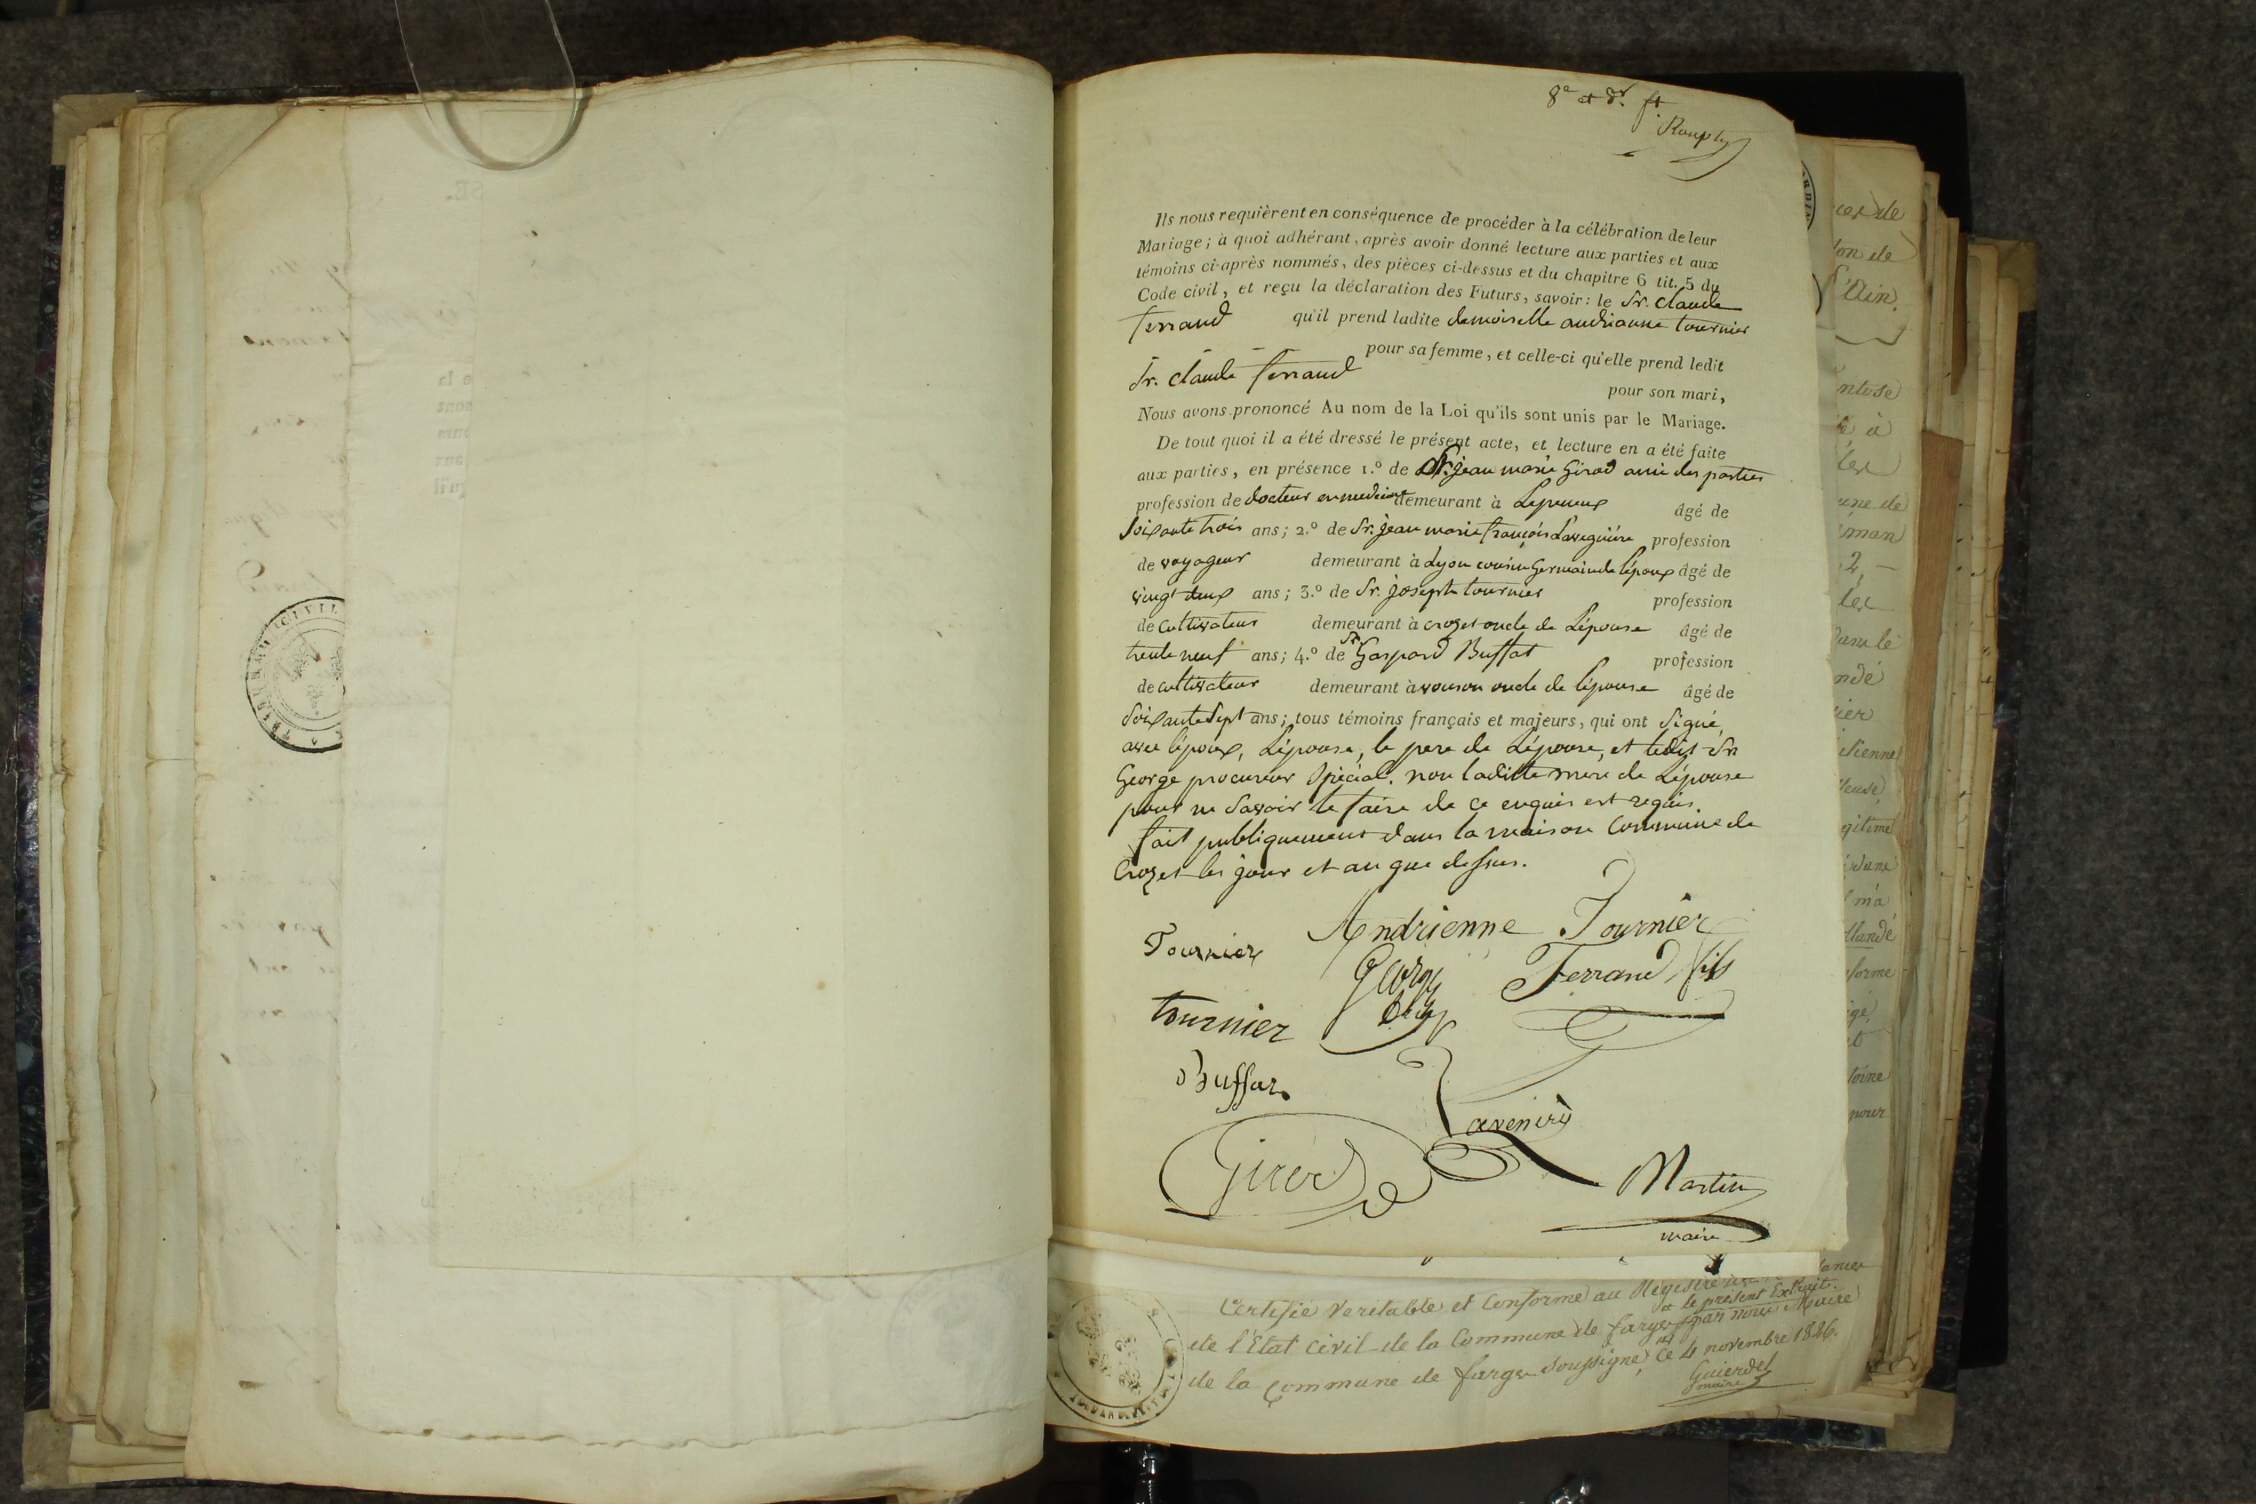 8e et dr. ft.
Ils nous requièrent en conséquence de procéder à la célébration de leur
Mariage ; à quoi adhérant, après avoir donné lecture aux parties et aux
témoins ci-après nommés, des pièces ci-dessus et du chapitre 6 tit. 5 du
Code civil, et reçu la déclaration des Futurs, savoir : le Sr. claude
ferrand qu'il prend ladite demoiselle andrianne tournier
pour sa femme, et celle-ci qu'elle prend ledit
Sr. claude ferrand
pour son mari,
Nous avons prononcé Au nom de la Loi qu'ils sont unis par le Mariage.
De tout quoi il a été dressé le présent acte, et lecture en a été faite
aux parties, en présence 1.º de Sr. jean marie Girod ami des parties
profession de docteur en medecine demeurant à âgé de
Soixante trois ans ; 2.º de Sr. jean marie françois profession
de voyageur demeurant à Lyon cousin Germain de l'époux âgé de
vingt deux ans ; 3.º de Sr. joseph tournier profession
de cultivateur demeurant à crozet oncle de Lépouse âgé de
trente neuf ans ; 4.º de Sr Gaspard Buffat profession
de cultivateur demeurant à oncle de lépouse âgé de
Soixante Sept ans ; tous témoins français et majeurs, qui ont Signé,
avec lépoux, Lépouse, le pere de Lépouse, et ledit Sr
George procureur Spécial. non laditte mere de Lépouse
pour ne Savoir le faire de ce enquis est requis.
fait publiquement dans la maison Commune de
Crozet les jour et an que dessus.
Andrienne Tournier
Tournier
George
Ferrand fils
tournier
Buffat
Girod
Martin
maire
Certifié veritable et Conforme au Registre
et le présent Extrait
de l'Etat civil de la Commune de farges par nous Maire
de la Commune de farges Soussigné, ce 4 novembre 1826.
maire